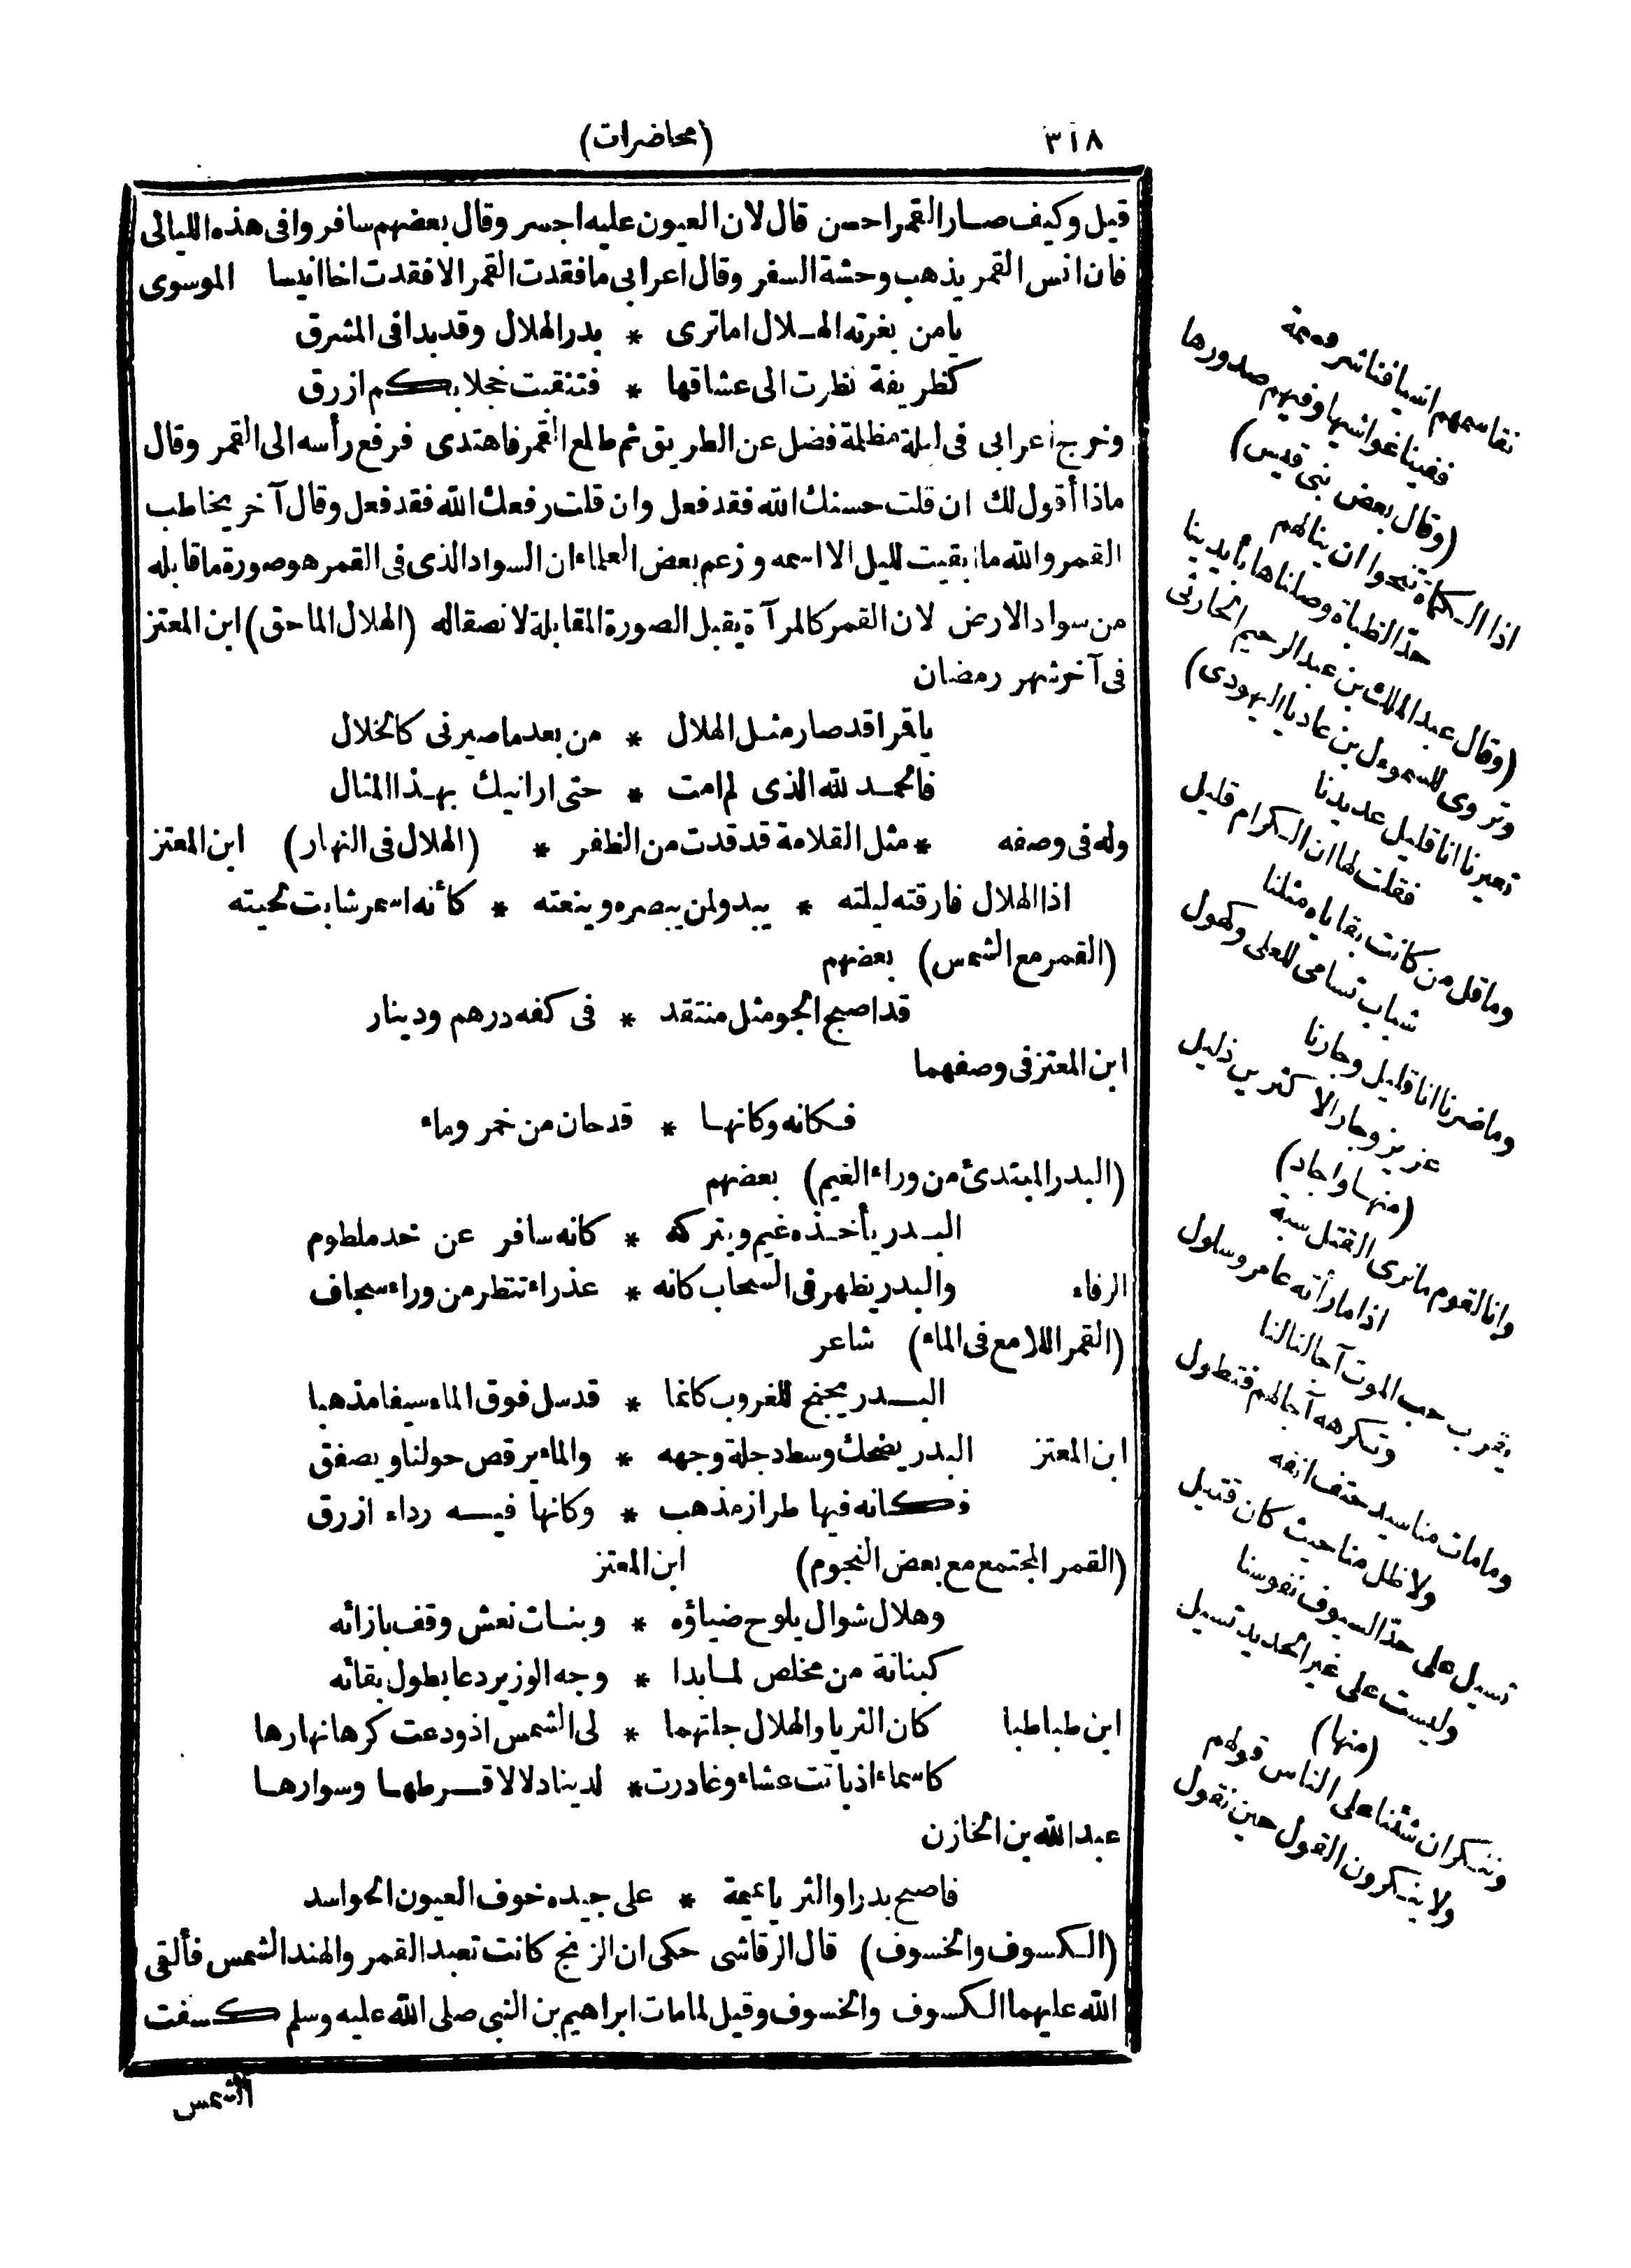 ٣١٨
(محاضرات)
قيل وكيف صار القمر احسن قال لان العيون عليه اجسر وقال بعضهم سافروا فى هذه الليالى
فان انس القمر يذهب وحشة السفر وقال اعرابى ما فقدت القمر الا فقدت اخا انيسا الموسوى
يا من بغرته الهلال اما ترى * بدر الهلال وقد بدا فى المشرق
كظريفة نظرت الى عشاقها * فتنقبت خجلا بكم ازرق
وخرج اعرابى فى ليلة مظلمة فضل عن الطريق ثم طلع القمر فاهتدى فرفع رأسه الى القمر وقال
ماذا أقول لك ان قلت حسنك الله فقد فعل وان قلت رفعك الله فقد فعل وقال آخر يخاطب
القمر والله ما ابقيت لليل الا اسمه وزعم بعض العلماء ان السواد الذى فى القمر هو صورة ما قابله
من سواد الارض لان القمر كالمرآة يقبل الصورة المقابلة لانصقاله (الهلال الماحق) ابن المعتز
فى آخر شهر رمضان
يا قمرا قد صار مثل الهلال * من بعد ما صيرنى كالخلال
فالحمد لله الذى لم امت * حتى ارانيك بهذا المثال
وله فى وصفه * مثل القلامة قد قدت من الظفر * (الهلال فى النهار) ابن المعتز
اذا الهلال فارقته ليلته * يبدو لمن يبصره وينعته * كأنه اسمر شابت لحيته
(القمر مع الشمس) بعضهم
قد اصبح الجو مثل منتقد * فى كفه درهم ودينار
ابن المعتز فى وصفهما
فكانه وكانها * قدحان من خمر وماء
(البدر المبتدئ من وراء الغيم) بعضهم
البدر يأخذه غيم ويتركه * كانه سافر عن خد ملطوم
الرفاء والبدر يظهر فى السحاب كانه * عذراء تنظر من وراء سجاف
(القمر اللامع فى الماء) شاعر
البدر يجنح للغروب كانما * قد سل فوق الماء سيفا مذهبا
ابن المعتز البدر يضحك وسط دجلة وجهه * والماء يرقص حولنا ويصفق
فكانه فيها طراز مذهب * وكانها فيه رداء ازرق
(القمر المجتمع مع بعض النجوم) ابن المعتز
وهلال شوال يلوح ضياؤه * وبنات نعش وقف بازائه
كبنانة من مخلص لما بدا * وجه الوزير دعا بطول بقائه
ابن طباطبا كان الثريا والهلال جلتهما * لى الشمس اذ ودعت كرها نهارها
كاسماء اذ باتت عشاء وغادرت * لدينا دلالا قرطها وسوارها
عبد الله بن الخازن
فاصبح بدرا والثريا تميمة * على جيده خوف العيون الحواسد
(الكسوف والخسوف) قال الرقاشى حكى ان الزنج كانت تعبد القمر والهند الشمس فألقى
الله عليهما الكسوف والخسوف وقيل لما مات ابراهيم بن النبى صلى الله عليه وسلم كسفت
الشمس
نقاسمهم اسيافنا شر قسمة
ففينا غواشيها وفيهم صدورها
(وقال بعض بنى قيس)
اذا الكماة تنحوا ان ينالهم
حدّ الظباة وصلناها بأيدينا
(وقال عبد الملك بن عبد الرحيم الحارثى
وتروى للسموءل بن عاديا اليهودى)
تعيرنا انا قليل عديدنا
فقلت لها ان الكرام قليل
وما قل من كانت بقاياه مثلنا
شباب تسامى للعلى وكهول
وما ضرنا انا قليل وجارنا
عزيز وجار الاكثرين ذليل
(منها واجاد)
وانا لقوم ما نرى القتل سبة
اذا ما رأته عامر وسلول
يقرب حب الموت آجالنا لنا
وتكرهه آجالهم فتطول
وما مات منا سيد حتف انفه
ولا ظل منا حيث كان قتيل
تسيل على حدّ السيوف نفوسنا
وليست على غير الحديد تسيل
(منها)
وننكر ان شئنا على الناس قولهم
ولا ينكرون القول حين نقول